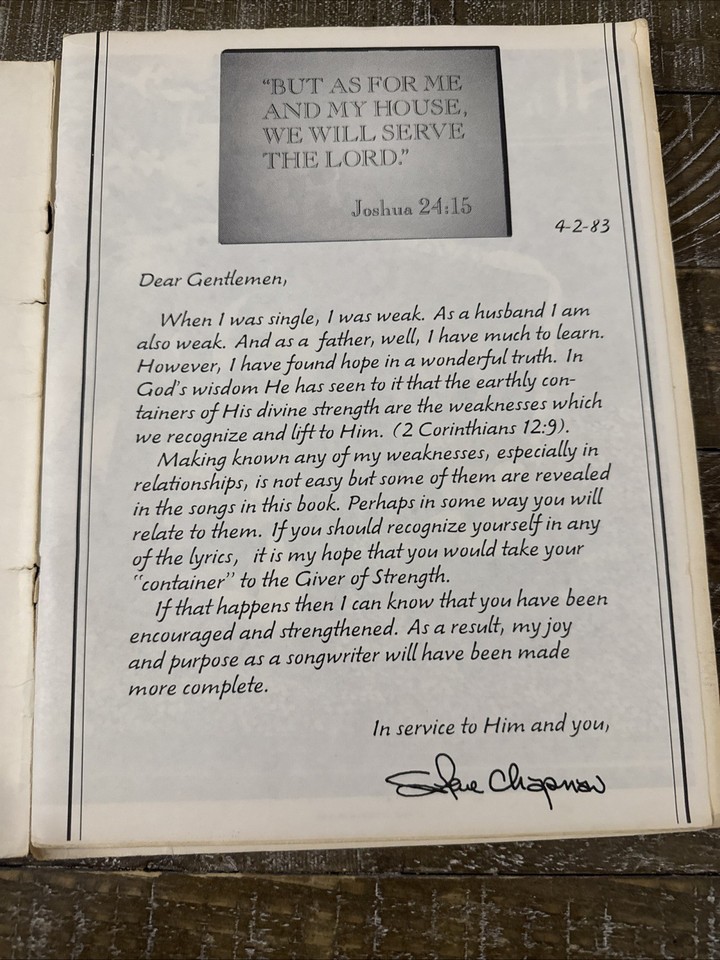 “BUT AS FOR ME
AND MY HOUSE,
WE WILL SERVE
THE LORD.”
Joshua 24:15
4-2-83
Dear Gentlemen,
When I was single, I was weak. As a husband I am
also weak. And as a father, well, I have much to learn.
However, I have found hope in a wonderful truth. In
God's wisdom He has seen to it that the earthly con-
tainers of His divine strength are the weaknesses which
we recognize and lift to Him. (2 Corinthians 12:9).
Making known any of my weaknesses, especially in
relationships, is not easy but some of them are revealed
in the songs in this book. Perhaps in some way you will
relate to them. If you should recognize yourself in any
of the lyrics, it is my hope that you would take your
“container” to the Giver of Strength.
If that happens then I can know that you have been
encouraged and strengthened. As a result, my joy
and purpose as a songwriter will have been made
more complete.
In service to Him and you,
Steve Chapman